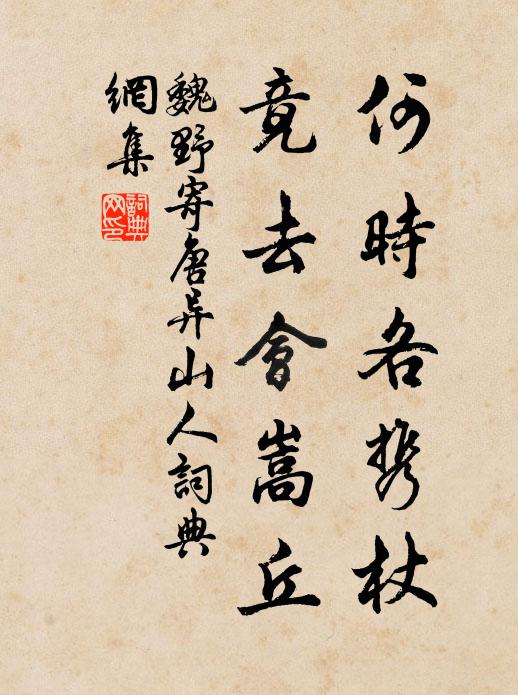 何時各携杖
竟去會嵩丘
魏野寄唐异山人詞典
網集
詞典网印